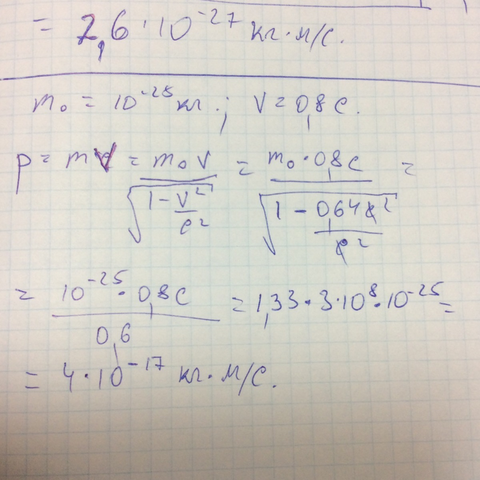 = 2,6 · 10⁻²⁷ кг·м/с.
m₀ = 10⁻²⁵ кг.; v = 0,8 c.
p = mv = m₀ v / √(1 - v²/c²) = m₀ · 0,8c / √(1 - 0,64c²/c²) =
= 10⁻²⁵ · 0,8c / 0,6 = 1,33 · 3 · 10⁸ · 10⁻²⁵ =
= 4 · 10⁻¹⁷ кг·м/с.